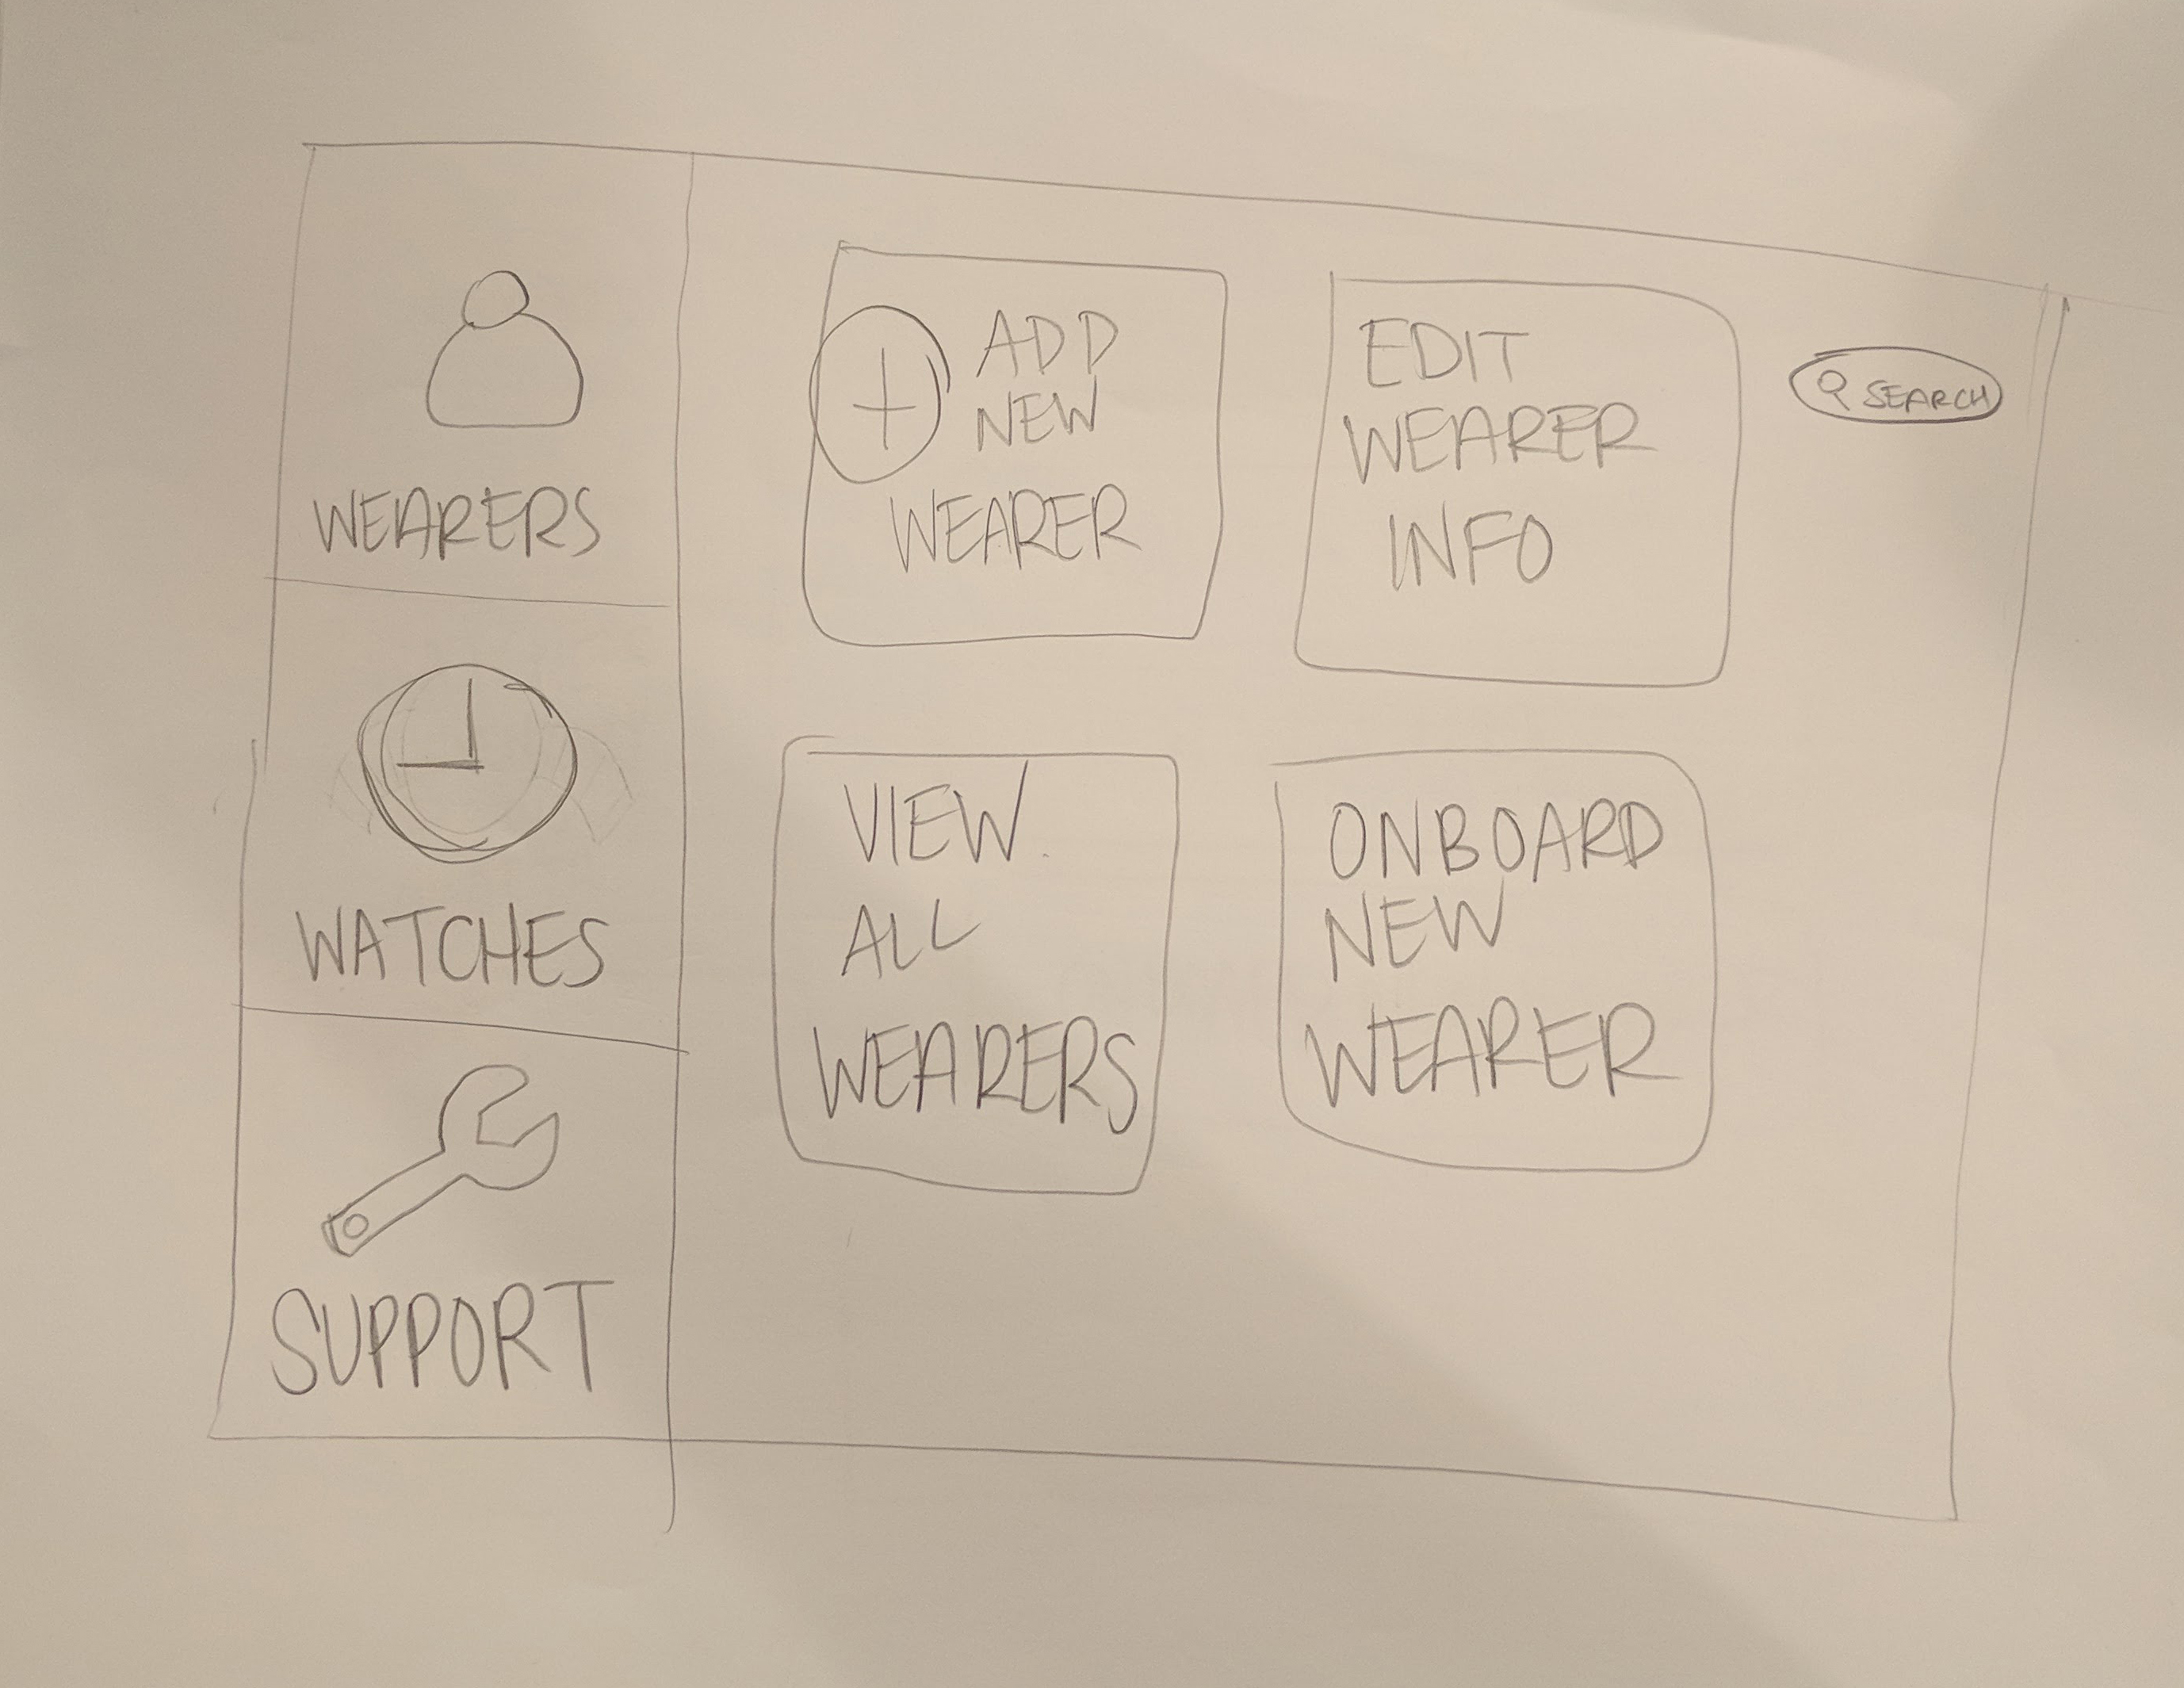 WEARERS
WATCHES
SUPPORT
ADD
NEW
WEARER
EDIT
WEARER
INFO
SEARCH
VIEW
ALL
WEARERS
ONBOARD
NEW
WEARER